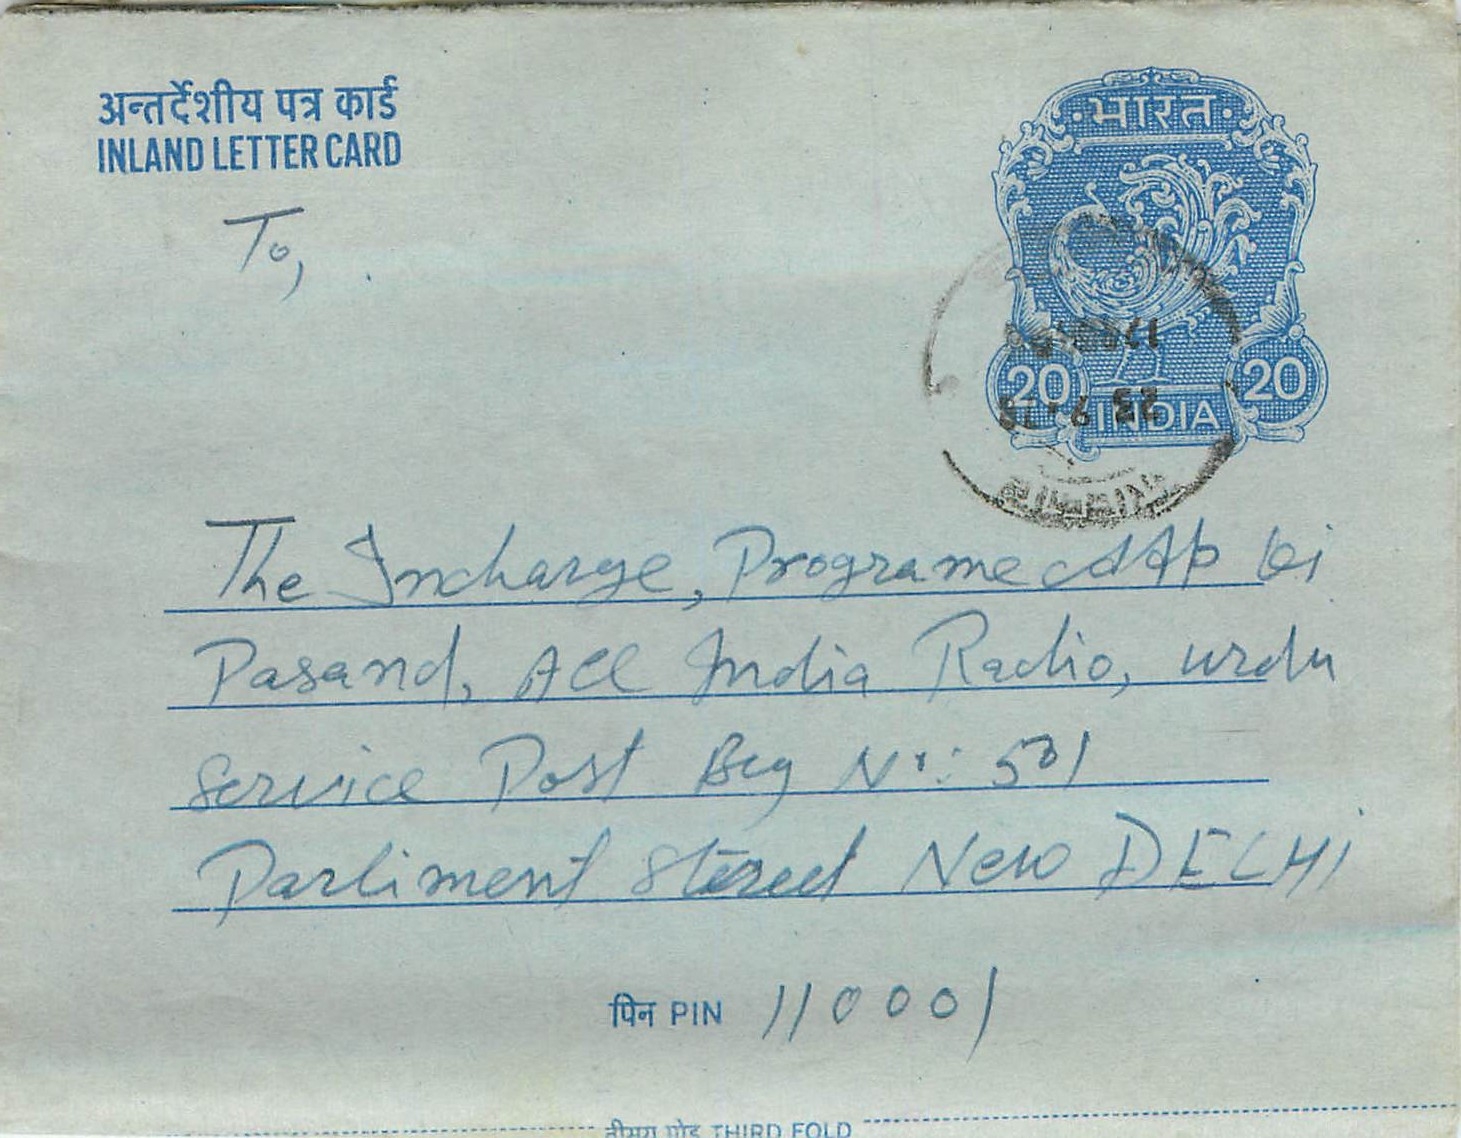 अन्तर्देशीय पत्र कार्ड
INLAND LETTER CARD
भारत
20 20
INDIA
To,
The Incharge, Programe AAp ki
Pasand, All India Radio, urdu
Service Post Beg No: 501
Parliment Stereet New DELHI
पिन PIN 110001
THIRD FOLD